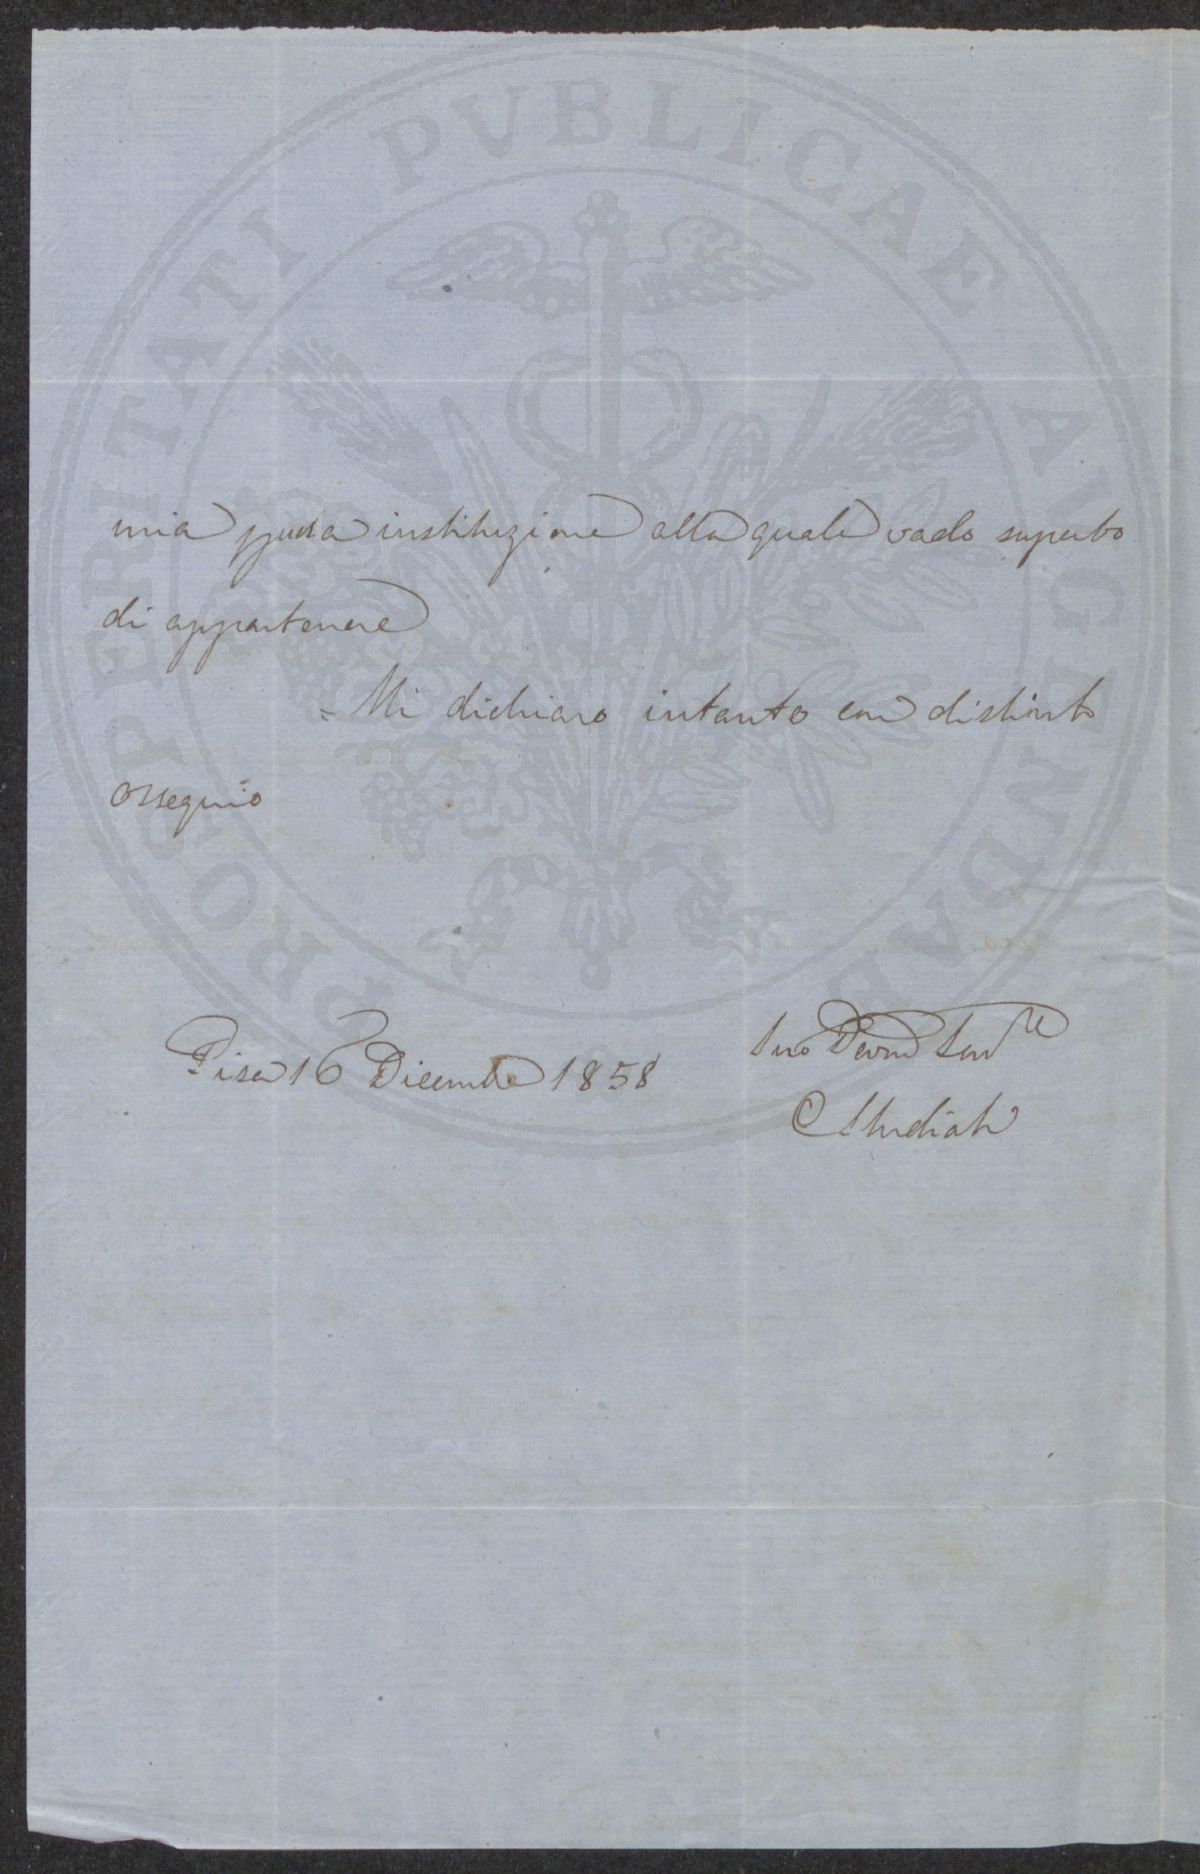 PROSPERITATI PUBLICAE AUGENDAE
mia instituzione alla quale vado superbo
di appartenere
Mi dichiaro intanto con distinto
ossequio
Pisa 16 Dicembre 1858
Suo
C Studiati